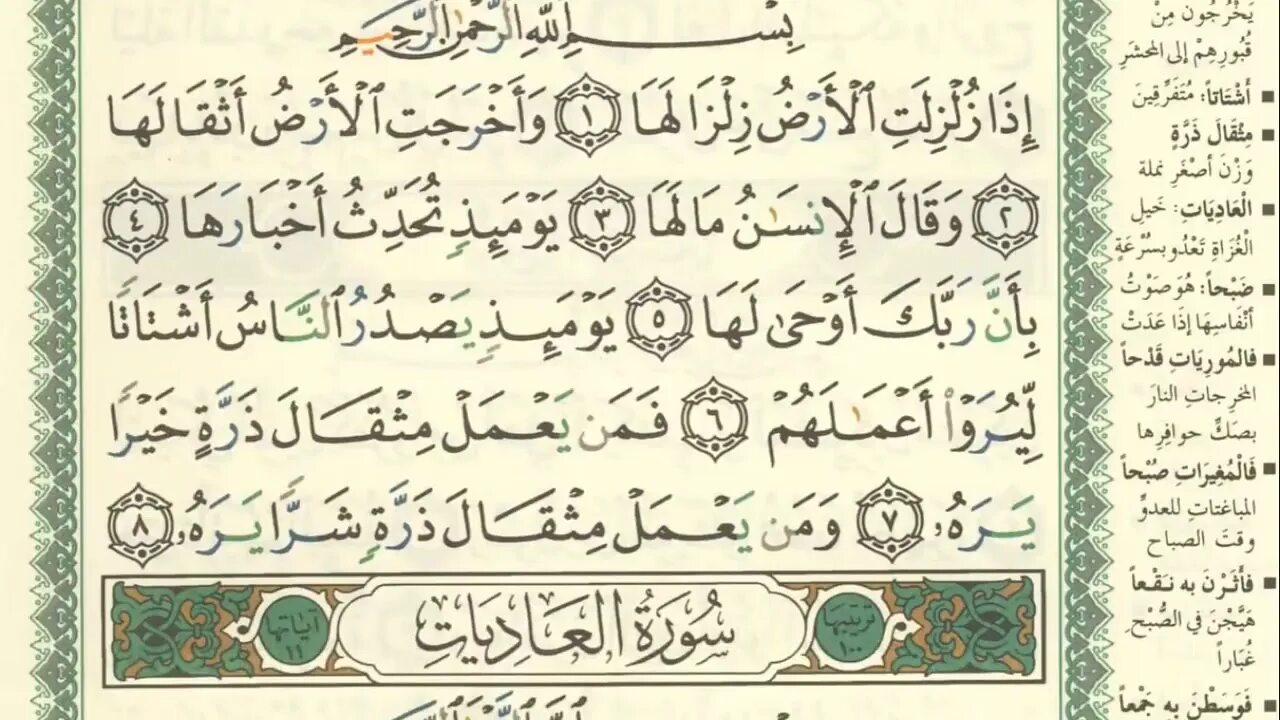 بِسْمِ ٱللَّهِ ٱلرَّحْمَٰنِ ٱلرَّحِيمِ
إِذَا زُلْزِلَتِ ٱلْأَرْضُ زِلْزَالَهَا ١ وَأَخْرَجَتِ ٱلْأَرْضُ أَثْقَالَهَا
٢ وَقَالَ ٱلْإِنسَٰنُ مَا لَهَا ٣ يَوْمَئِذٍ تُحَدِّثُ أَخْبَارَهَا ٤
بِأَنَّ رَبَّكَ أَوْحَىٰ لَهَا ٥ يَوْمَئِذٍ يَصْدُرُ ٱلنَّاسُ أَشْتَاتًا
لِّيُرَوْا۟ أَعْمَٰلَهُمْ ٦ فَمَن يَعْمَلْ مِثْقَالَ ذَرَّةٍ خَيْرًا
يَرَهُۥ ٧ وَمَن يَعْمَلْ مِثْقَالَ ذَرَّةٍ شَرًّا يَرَهُۥ ٨
ترتيبها ١٠٠ سُورَةُ العَادِيَاتِ آياتها ١١
يَخْرُجُون مِنْ
قُبُورِهِمْ إلى المحشَرِ
أَشْتَاتاً: مُتَفَرِّقِينَ
مِثْقَالَ ذَرَّةٍ
وَزْنَ أصْغَرِ نملة
الْعَادِيَاتِ: خَيلِ
الْغُزَاةِ تَعْدُو بسُرْعَةٍ
ضَبْحاً: هُوَ صَوْتُ
أنْفَاسِهَا إذَا عَدَتْ
فالمُورِيَاتِ قَدْحاً
المخرِجاتِ النارَ
بصَكِّ حوافِرِها
فَالْمُغِيرَاتِ صُبْحاً
المباغتاتِ للعدوِّ
وقتَ الصباح
فأَثَرْنَ به نَقْعاً
هَيَّجْنَ في الصُّبْحِ
غُبَاراً
فَوَسَطْنَ بِهِ جَمْعاً